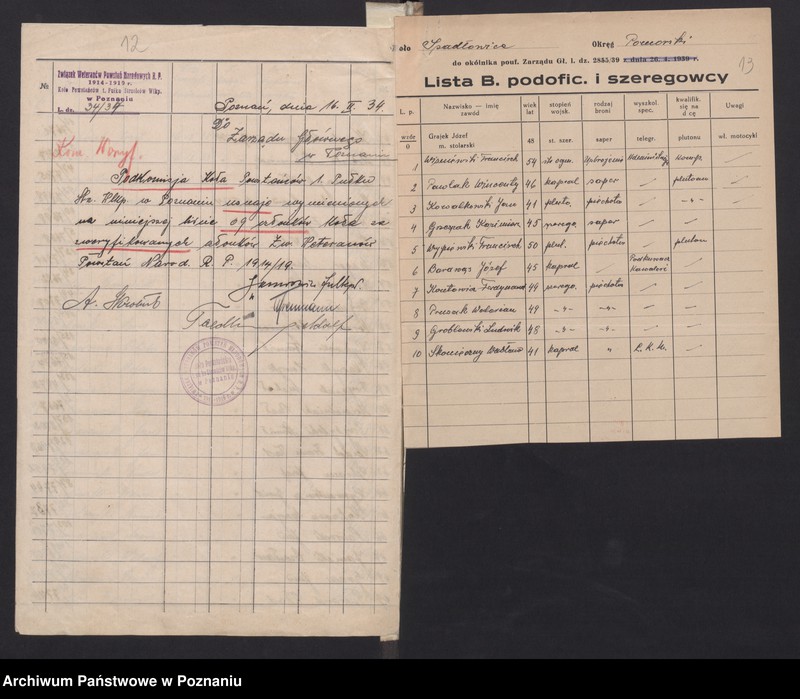 12
Związek Weteranów Powstań Narodowych R. P.
1914-1919 r.
Koło Powstańców 1. Pułku Strzelców Wlkp.
w Poznaniu
L. dz. 34/34
№
Poznań, dnia 16. II. 34.
Do
Zarządu Głównego
w Poznaniu
Kom. Weryf.
Podkomisja Koła Powstańców 1. Pułku
Strz. Wlkp. w Poznaniu uznaje wymienionych
na niniejszej liście 09 członków Koła za
zweryfikowanych członków Zw. Weteranów
Powstań Narod. R. P. 1914/19.
13
Koło Okręg Pomorski
do okólnika pouf. Zarządu Gł, l. dz. 2885/39 z dnia 26. 4. 1939 r.
Lista B. podofic. i szeregowcy
L. p. Nazwisko — imię zawód wiek lat stopień wojsk. rodzaj broni wyszkol. spec. kwalifik. się na d cę Uwagi
wzór 0 Grajek Józef m. stolarski 48 st. szer. saper telegr. plutonu wł. motocykl
1 Franciszek 54 komp.
2 Pawlak Wincenty 46 kapral saper plutonu
3 Kowalkowski Jan 41 pluto. piechota -„-
4 Kazimierz 45 saper
5 Wypijewski Franciszek 50 plut. piechota plutonu
6 Józef 45 kapral Podkuwacz Kawaleri
7 Ferdynand 44 piechota
8 Walerian 49 -„- -„-
9 Grobłewski Ludwik 48 -„- -„-
10 Wacław 41 kapral „ L. K. M.
Archiwum Państwowe w Poznaniu